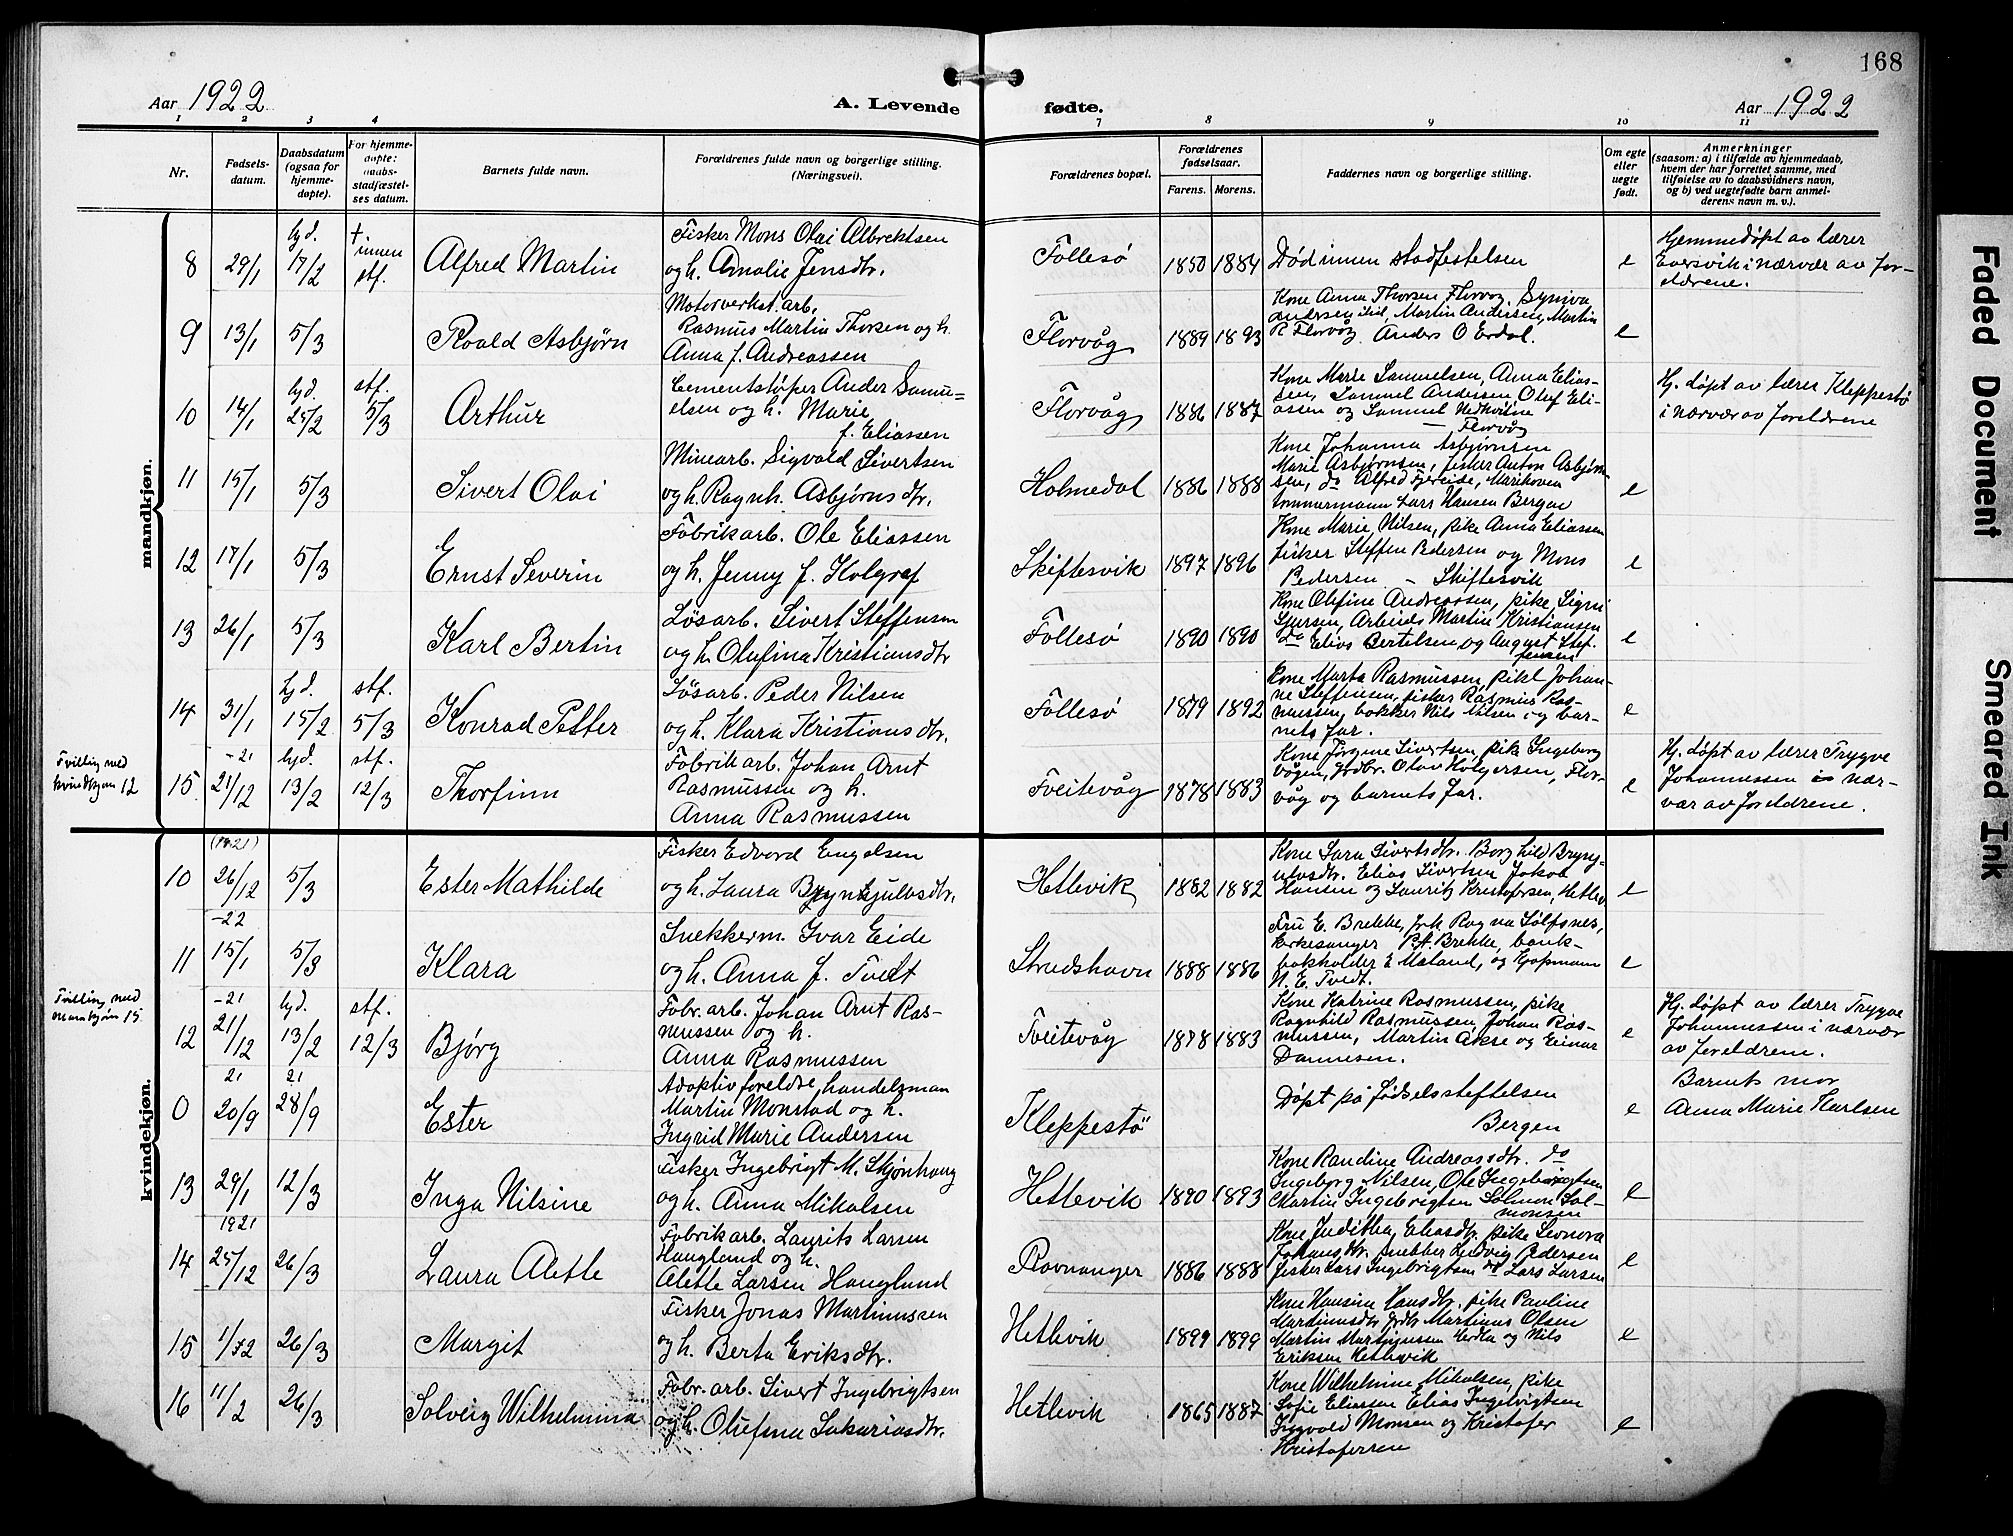 168
Aar 1922
A. Levende fødte.
Aar 1922
1 2 3 4 7 8 9 10 11
Nr.
Fødsels-
datum.
Daabsdatum
(ogsaa for
hjemme-
døpte).
For hjemme-
døpte:
daabs-
stadfæstel-
ses datum.
Barnets fulde navn.
Forældrenes fulde navn og borgerlige stilling.
(Næringsvei).
Forældrenes bopæl.
Forældrenes
fødselsaar.
Farens. Morens.
Faddernes navn og borgerlige stilling.
Om egte
eller
uegte
født.
Anmerkninger
(saasom: a) i tilfælde av hjemmedaab,
hvem der har forrettet samme, med
tilføielse av to daabsvidners navn,
og b) ved uegtefødte barn anmel-
derens navn m. v.).
mandkjøn.
8 29/1 hjd. 17/2 † innen stf. Alfred Martin
Fisker Mons Olai Albrektsen
og h. Amalie Jensdtr.
Follesø 1850 1884 Død innen stadfestelsen e
Hjemmedøpt av lærer
Eversvik i nærvær av for-
eldrene.
9 13/1 5/3 Roald Asbjørn
Motorverkst. arb.
Rasmus Martin Thorsen og h.
Anna f. Andreassen
Florvåg 1889 1893
Kone Anna Thorsen Florvåg, Synive
Andersen, Martin Andersen, Martin
R Florvåg, Anders O Erdal. e
10 14/1 hjd. 25/2 stf. 5/3 Arthur
Cementstøper Ander Samu=
elsen og h. Marie
f. Eliassen
Florvåg 1886 1887
Kone Marie Samuelsen, Anna Elias-
sen, Samuel Andersen Oluf Eli-
assen og Samuel Nedkvitne
– Florvåg
Hj. døpt av lærer Kleppestø
i nærvær av foreldrene
11 15/1 5/3 Sivert Olai
Minearb. Sigvald Sivertsen
og h. Ragnh. Asbjørnsdtr.
Holmedal 1886 1888
Kone Johanna Asbjørnsen
Marie Asbjørnsen, fisker Anton Asbjørn-
sen, do Alfred Fjereide, Marikoven
tømmermann Lars Hansen Bergen e
12 17/1 5/3 Ernst Severin
Fabrikarb. Ole Eliassen
og h. Jenny f. Holgraf
Skiftesvik 1897 1896
Kone Marie Nilsen, pike Anna Eliassen
fisker Steffen Pedersen og Mons
Pedersen – Skiftesvik e
13 26/1 5/3 Karl Bertin
Løsarb. Sivert Steffensen
og h. Olufina Kristiansdtr
Follesø 1890 1890
Kone Olefine Andreassen, pike Signi
Sjursen, Arbeids Martin Kristiansen
do Elias Bertelsen og August Stef-
fensen e
14 31/1 hjd. 15/2 stf. 5/3 Konrad Petter
Løsarb. Peder Nilsen
og h. Klara Kristiansdtr.
Follesø 1879 1892
Kone Marta Rasmussen, pike Johan-
ne Steffensen, fisker Rasmus Ras-
mussen, bøkker Nils Nilsen og bar-
nets far. e
Tvilling med
kvindkjøn 12
15. -21 21/12 hjd. 13/2 stf. 12/3 Thorfinn
Fabrikarb. Johan Arnt
Rasmussen og h.
Anna Rasmussen
Tveitevåg 1878 1883
Kone Jørgine Sivertsen, pike Ingeborg
Vågen, Jordbr. Olav Holgersen, Flor-
våg og barnets far. e
Hj. døpt av lærer Trygve
Johannessen i nær-
vær av foreldrene.
kvindekjøn.
10 (1921) 26/12 5/3 Ester Mathilde
Fisker Edvard Engelsen
og h. Laura Brynkjulvsdtr.
Hetlevik 1882 1882
Kone Sara Sivertsdtr. Borghild Brynj-
ulvsdtr. Elias Sivertsen Jakob
Hansen og Lauritz Kristofersen, Hetlev e
11 -22 15/1 5/3 Klara
Snekkerm. Ivar Eide
og h. Anna f. Tveit
Strudshavn 1888 1886
Fru E. Brekke, frk. Ragna Solfosnes,
kirkesanger P.A. Brekke, bank-
bokholder E Matand, og Kjøpmann
N. E. Tveit. e
Tvilling med
mannkjøn 15
12 -21 21/12 hjd. 13/2 stf. 12/3 Bjørg
Fabr. arb. Johan Arnt Ras-
mussen og h.
Anna Rasmussen
Tveitevåg 1878 1883
Kone Katrine Rasmussen, pike
Ragnhild Rasmussen, Johan Ras-
mussen, Martin Akse og Einar
Dannesen. e
Hj. døpt av lærer Trygve
Johannessen i nærvær
av foreldrene.
0 21 20/9 21 28/9 Ester
Adoptivforeldre, handelsman
Martin Monstad og h.
Ingrid Marie Andersen
Kleppestø
Døpt på fødselsstiftelsen
Bergen e
Barnets mor
Anna Marie Karlsen
13 29/1 12/3 Inga Nilsine
Fisker Ingebrigt M. Skjønhaug
og h. Anna Mikalsen
Hetlevik 1890 1893
Kone Randine Andreasdtr. do
Ingeborg Nilsen, Ole Ingebrigtsen
Martin Ingebrigtsen Salmon Sal-
monsen e
14 1921 25/12 26/3 Laura Alette
Fabrikarb. Laurits Larsen
Hauglund og h.
Alette Larsen Hauglund
Ravnanger 1886 1888
Kone Juditha Eliasdtr. pike Leonora
Johansdtr. snekker Ludvig Pedersen
fisker Lars Ingebrigtsen do Lars Larsen e
15 1/12 26/3 Margit
Fisker Jonas Martinussen
og h. Berta Eriksdtr.
Hetlevik 1899 1899
Kone Hansine Hansdtr. pike Pauline
Martinusdtr Jordbr Martinus Olsen
Martin Martinussen Herdla og Nils
Eriksen Hetlevik e
16 11/2 26/3 Solveig Wilhelmina
Fabr. arb. Sivert Ingebrigtsen
og h. Olufina Sakariasdtr.
Hetlevik 1865 1887
Kone Wilhelmine Mikalsen, pike
Sofie Eliassen Elias Ingebrigtsen
Ingvald Monsen og Kristofer
Kristofersen e
Faded Document
Smeared Ink